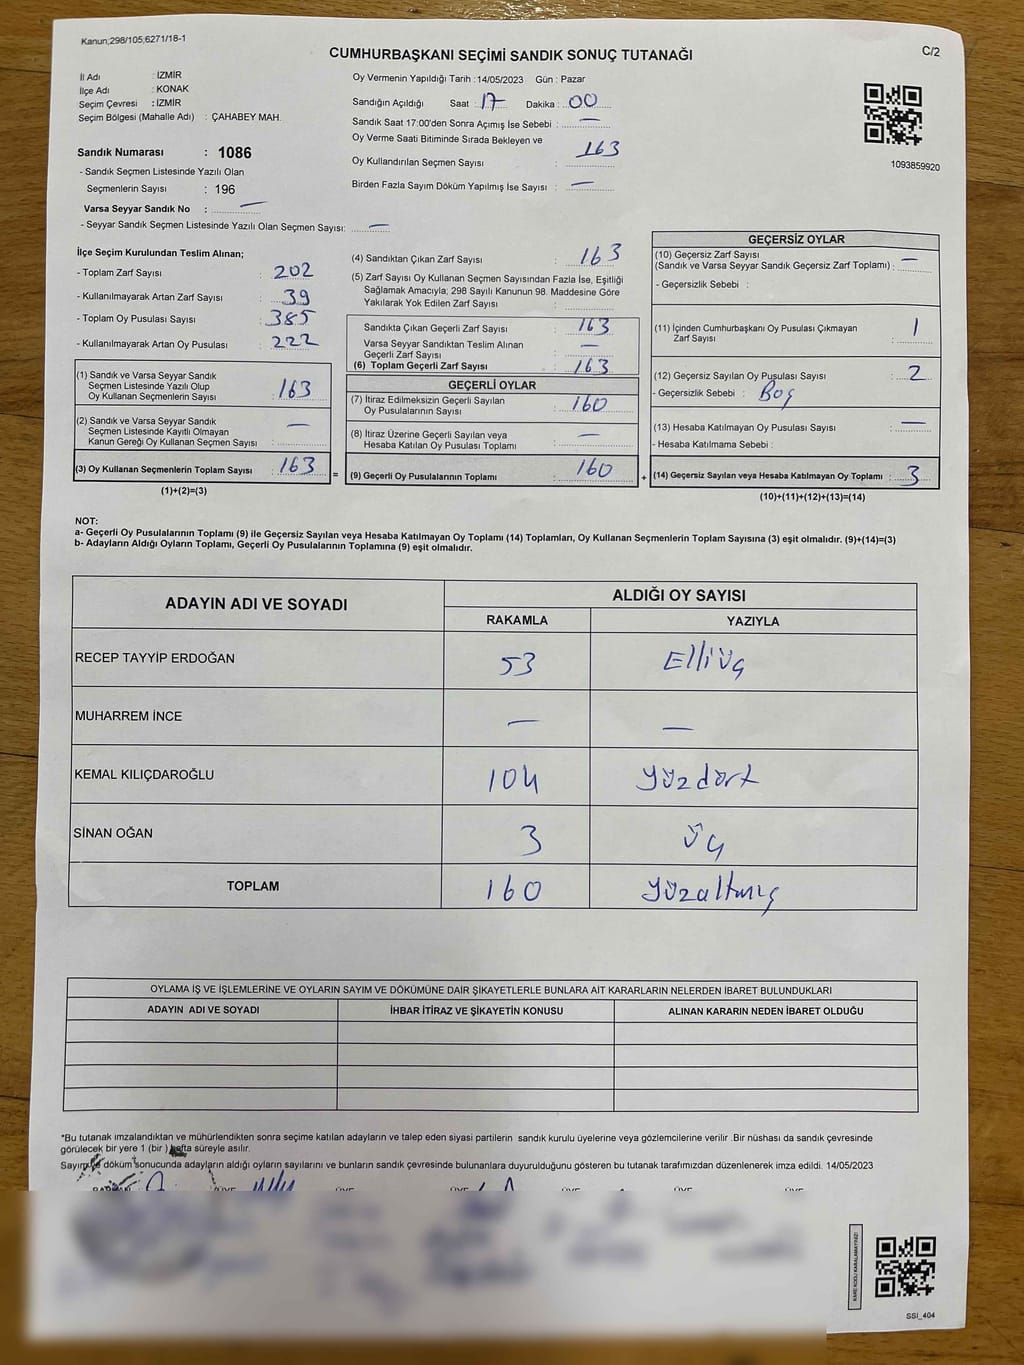 Kanun;298/105;6271/18-1
C/2
CUMHURBAŞKANI SEÇİMİ SANDIK SONUÇ TUTANAĞI
İl Adı : İZMİR
İlçe Adı : KONAK
Seçim Çevresi : İZMİR
Seçim Bölgesi (Mahalle Adı) : ÇAHABEY MAH.
Sandık Numarası : 1086
- Sandık Seçmen Listesinde Yazılı Olan
Seçmenlerin Sayısı : 196
Varsa Seyyar Sandık No : —
- Seyyar Sandık Seçmen Listesinde Yazılı Olan Seçmen Sayısı: —
Oy Vermenin Yapıldığı Tarih : 14/05/2023 Gün : Pazar
Sandığın Açıldığı Saat : 17 Dakika : 00
Sandık Saat 17:00'den Sonra Açımış İse Sebebi : —
Oy Verme Saati Bitiminde Sırada Bekleyen ve
Oy Kullandırılan Seçmen Sayısı : 163
Birden Fazla Sayım Döküm Yapılmış İse Sayısı : —
1093859920
İlçe Seçim Kurulundan Teslim Alınan;
- Toplam Zarf Sayısı : 202
- Kullanılmayarak Artan Zarf Sayısı : 39
- Toplam Oy Pusulası Sayısı : 385
- Kullanılmayarak Artan Oy Pusulası : 222
(1) Sandık ve Varsa Seyyar Sandık
Seçmen Listesinde Yazılı Olup
Oy Kullanan Seçmenlerin Sayısı : 163
(2) Sandık ve Varsa Seyyar Sandık
Seçmen Listesinde Kayıtlı Olmayan
Kanun Gereği Oy Kullanan Seçmen Sayısı : —
(3) Oy Kullanan Seçmenlerin Toplam Sayısı : 163 =
(1)+(2)=(3)
(4) Sandıktan Çıkan Zarf Sayısı : 163
(5) Zarf Sayısı Oy Kullanan Seçmen Sayısından Fazla İse, Eşitliği
Sağlamak Amacıyla; 298 Sayılı Kanunun 98. Maddesine Göre
Yakılarak Yok Edilen Zarf Sayısı :
Sandıkta Çıkan Geçerli Zarf Sayısı : 163
Varsa Seyyar Sandıktan Teslim Alınan
Geçerli Zarf Sayısı : —
(6) Toplam Geçerli Zarf Sayısı : 163
GEÇERLİ OYLAR
(7) İtiraz Edilmeksizin Geçerli Sayılan
Oy Pusulalarının Sayısı : 160
(8) İtiraz Üzerine Geçerli Sayılan veya
Hesaba Katılan Oy Pusulası Toplamı : —
(9) Geçerli Oy Pusulalarının Toplamı : 160 +
GEÇERSİZ OYLAR
(10) Geçersiz Zarf Sayısı
(Sandık ve Varsa Seyyar Sandık Geçersiz Zarf Toplamı) : —
- Geçersizlik Sebebi :
(11) İçinden Cumhurbaşkanı Oy Pusulası Çıkmayan
Zarf Sayısı : 1
(12) Geçersiz Sayılan Oy Pusulası Sayısı : 2
- Geçersizlik Sebebi : Boş
(13) Hesaba Katılmayan Oy Pusulası Sayısı : —
- Hesaba Katılmama Sebebi :
(14) Geçersiz Sayılan veya Hesaba Katılmayan Oy Toplamı : 3
(10)+(11)+(12)+(13)=(14)
NOT:
a- Geçerli Oy Pusulalarının Toplamı (9) ile Geçersiz Sayılan veya Hesaba Katılmayan Oy Toplamı (14) Toplamları, Oy Kullanan Seçmenlerin Toplam Sayısına (3) eşit olmalıdır. (9)+(14)=(3)
b- Adayların Aldığı Oyların Toplamı, Geçerli Oy Pusulalarının Toplamına (9) eşit olmalıdır.
ADAYIN ADI VE SOYADI ALDIĞI OY SAYISI
RAKAMLA YAZIYLA
RECEP TAYYİP ERDOĞAN 53 Elliüç
MUHARREM İNCE — —
KEMAL KILIÇDAROĞLU 104 Yüzdört
SİNAN OĞAN 3 Üç
TOPLAM 160 Yüzaltmış
OYLAMA İŞ VE İŞLEMLERİNE VE OYLARIN SAYIM VE DÖKÜMÜNE DAİR ŞİKAYETLERLE BUNLARA AİT KARARLARIN NELERDEN İBARET BULUNDUKLARI
ADAYIN ADI VE SOYADI İHBAR İTİRAZ VE ŞİKAYETİN KONUSU ALINAN KARARIN NEDEN İBARET OLDUĞU
*Bu tutanak imzalandıktan ve mühürlendikten sonra seçime katılan adayların ve talep eden siyasi partilerin sandık kurulu üyelerine veya gözlemcilerine verilir .Bir nüshası da sandık çevresinde
görülecek bir yere 1 (bir ) hafta süreyle asılır.
Sayım ve döküm sonucunda adayların aldığı oyların sayılarını ve bunların sandık çevresinde bulunanlara duyurulduğunu gösteren bu tutanak tarafımızdan düzenlenerek imza edildi. 14/05/2023
KARE KODU KARALAMAYINIZ!
SSI_404